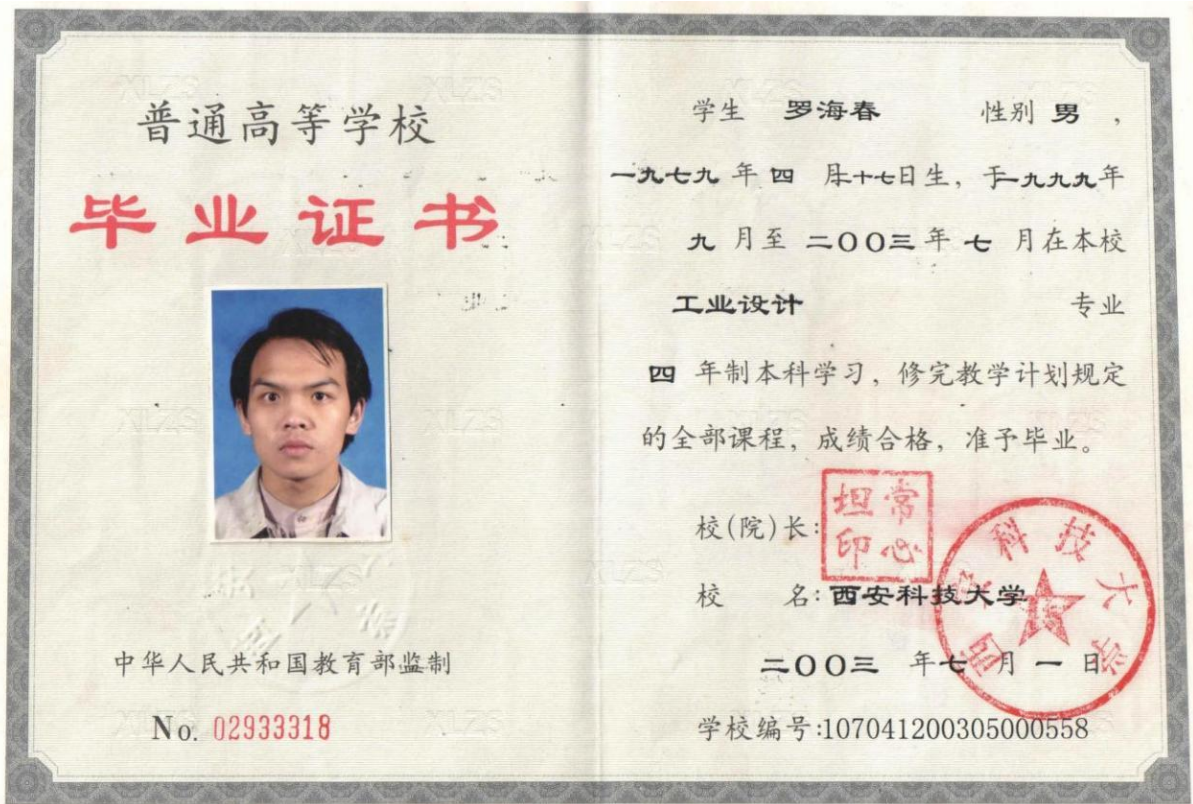 普通高等学校
毕业证书
中华人民共和国教育部监制
No. 02933318
学生 罗海春 性别 男，
一九七九 年 四 月十七日生，于一九九九年
九 月至 二〇〇三 年 七 月在本校
工业设计 专业
四 年制本科学习，修完教学计划规定
的全部课程，成绩合格，准予毕业。
校(院)长:
常心坦印
校 名: 西安科技大学
西安科技大学
二〇〇三 年 七 月 一 日
学校编号:107041200305000558
XLZS